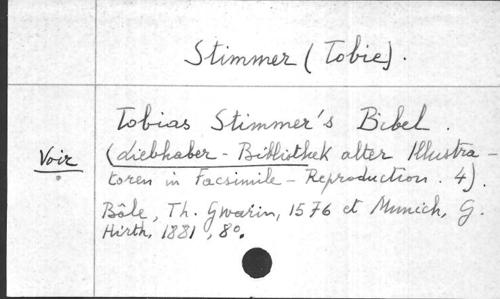 Stimmer (Tobie).
Tobias Stimmer's Bibel.
Voir
(Liebhaber-Bibliothek alter Illustra-
toren in Facsimile-Reproduction. 4).
Bâle, Th. Gwarin, 1576 et Munich, G.
Hirth, 1881, 8°.